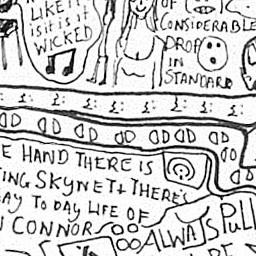 LIKE IT
is it is it
WICKED
OF
CONSIDERABLE
DROP
IN
STANDARD
E HAND THERE IS
ING SKYNET + THERE'S
AY TO DAY LIFE OF
N CONNOR
ALWAYS PULL